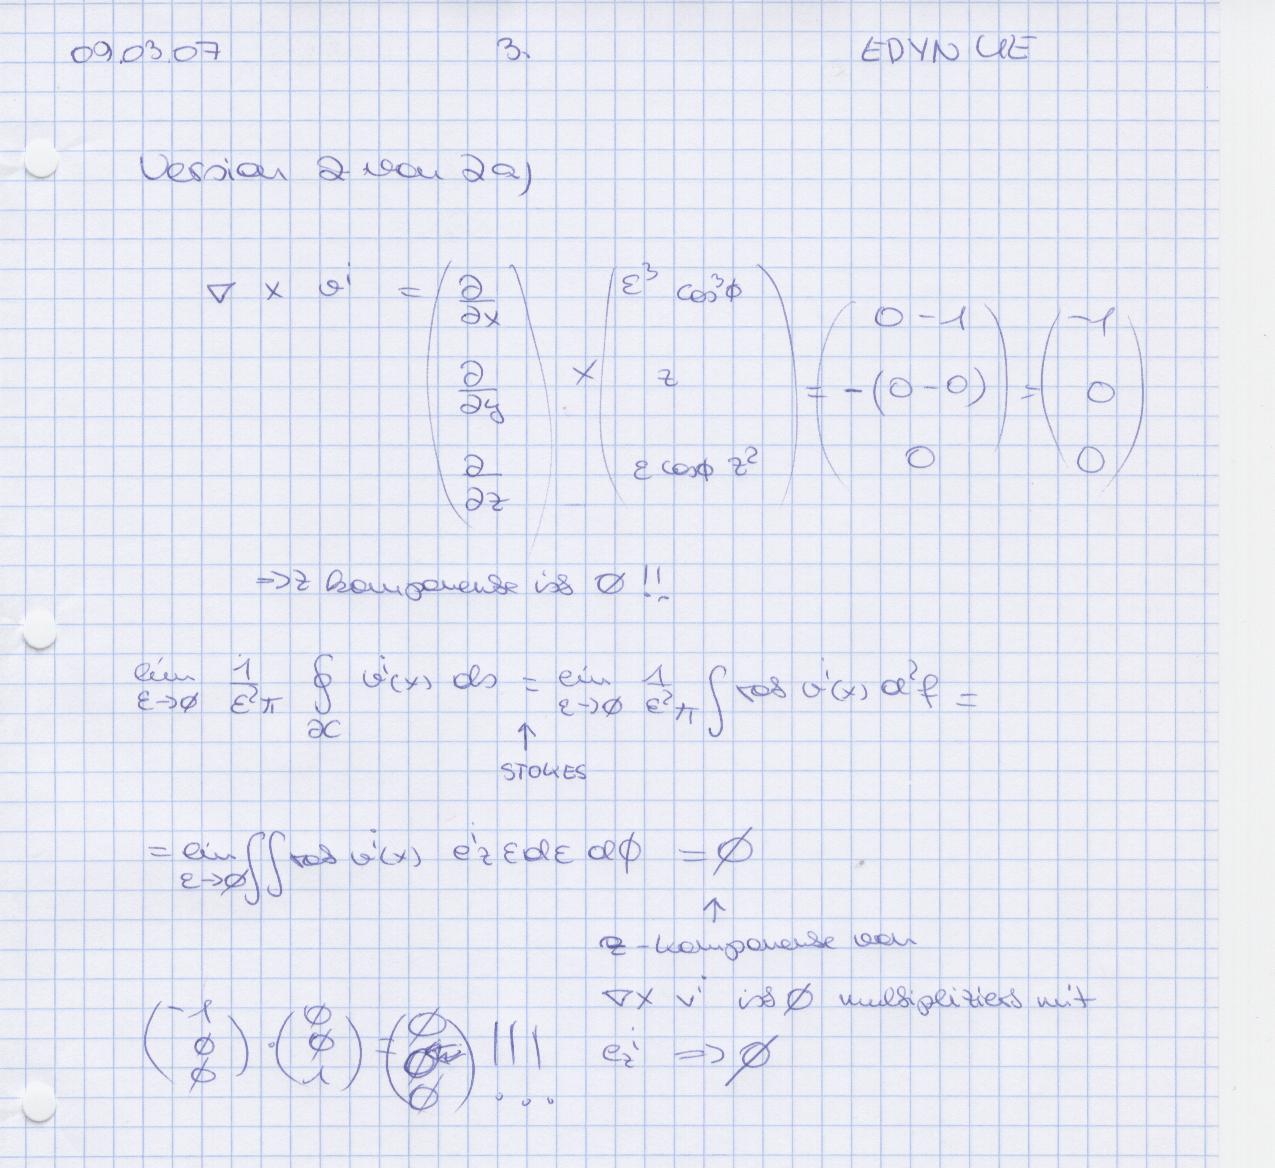 09.03.07 3. EDYN UE
Version 2 von 2a)
∇ × v⃗ = (∂/∂x, ∂/∂y, ∂/∂z) × (ε³ cos³φ, z, ε cosφ z²) = (0-1, -(0-0), 0) = (-1, 0, 0)
=> z komponente ist ∅ !!
lim ε→∅ 1/ε²π ∮ ∂C v⃗(x) ds = lim ε→∅ 1/ε²π ∫ rot v⃗(x) d²f =
↑
STOKES
= lim ε→∅ ∫∫ rot v⃗(x) e⃗z ε dε dφ = ∅
↑
z-komponente von
∇× v⃗ ist ∅ multipliziert mit
e⃗z => ∅
(-1, ∅, ∅) · (∅, ∅, 1) = (∅, ∅, ∅) !!!